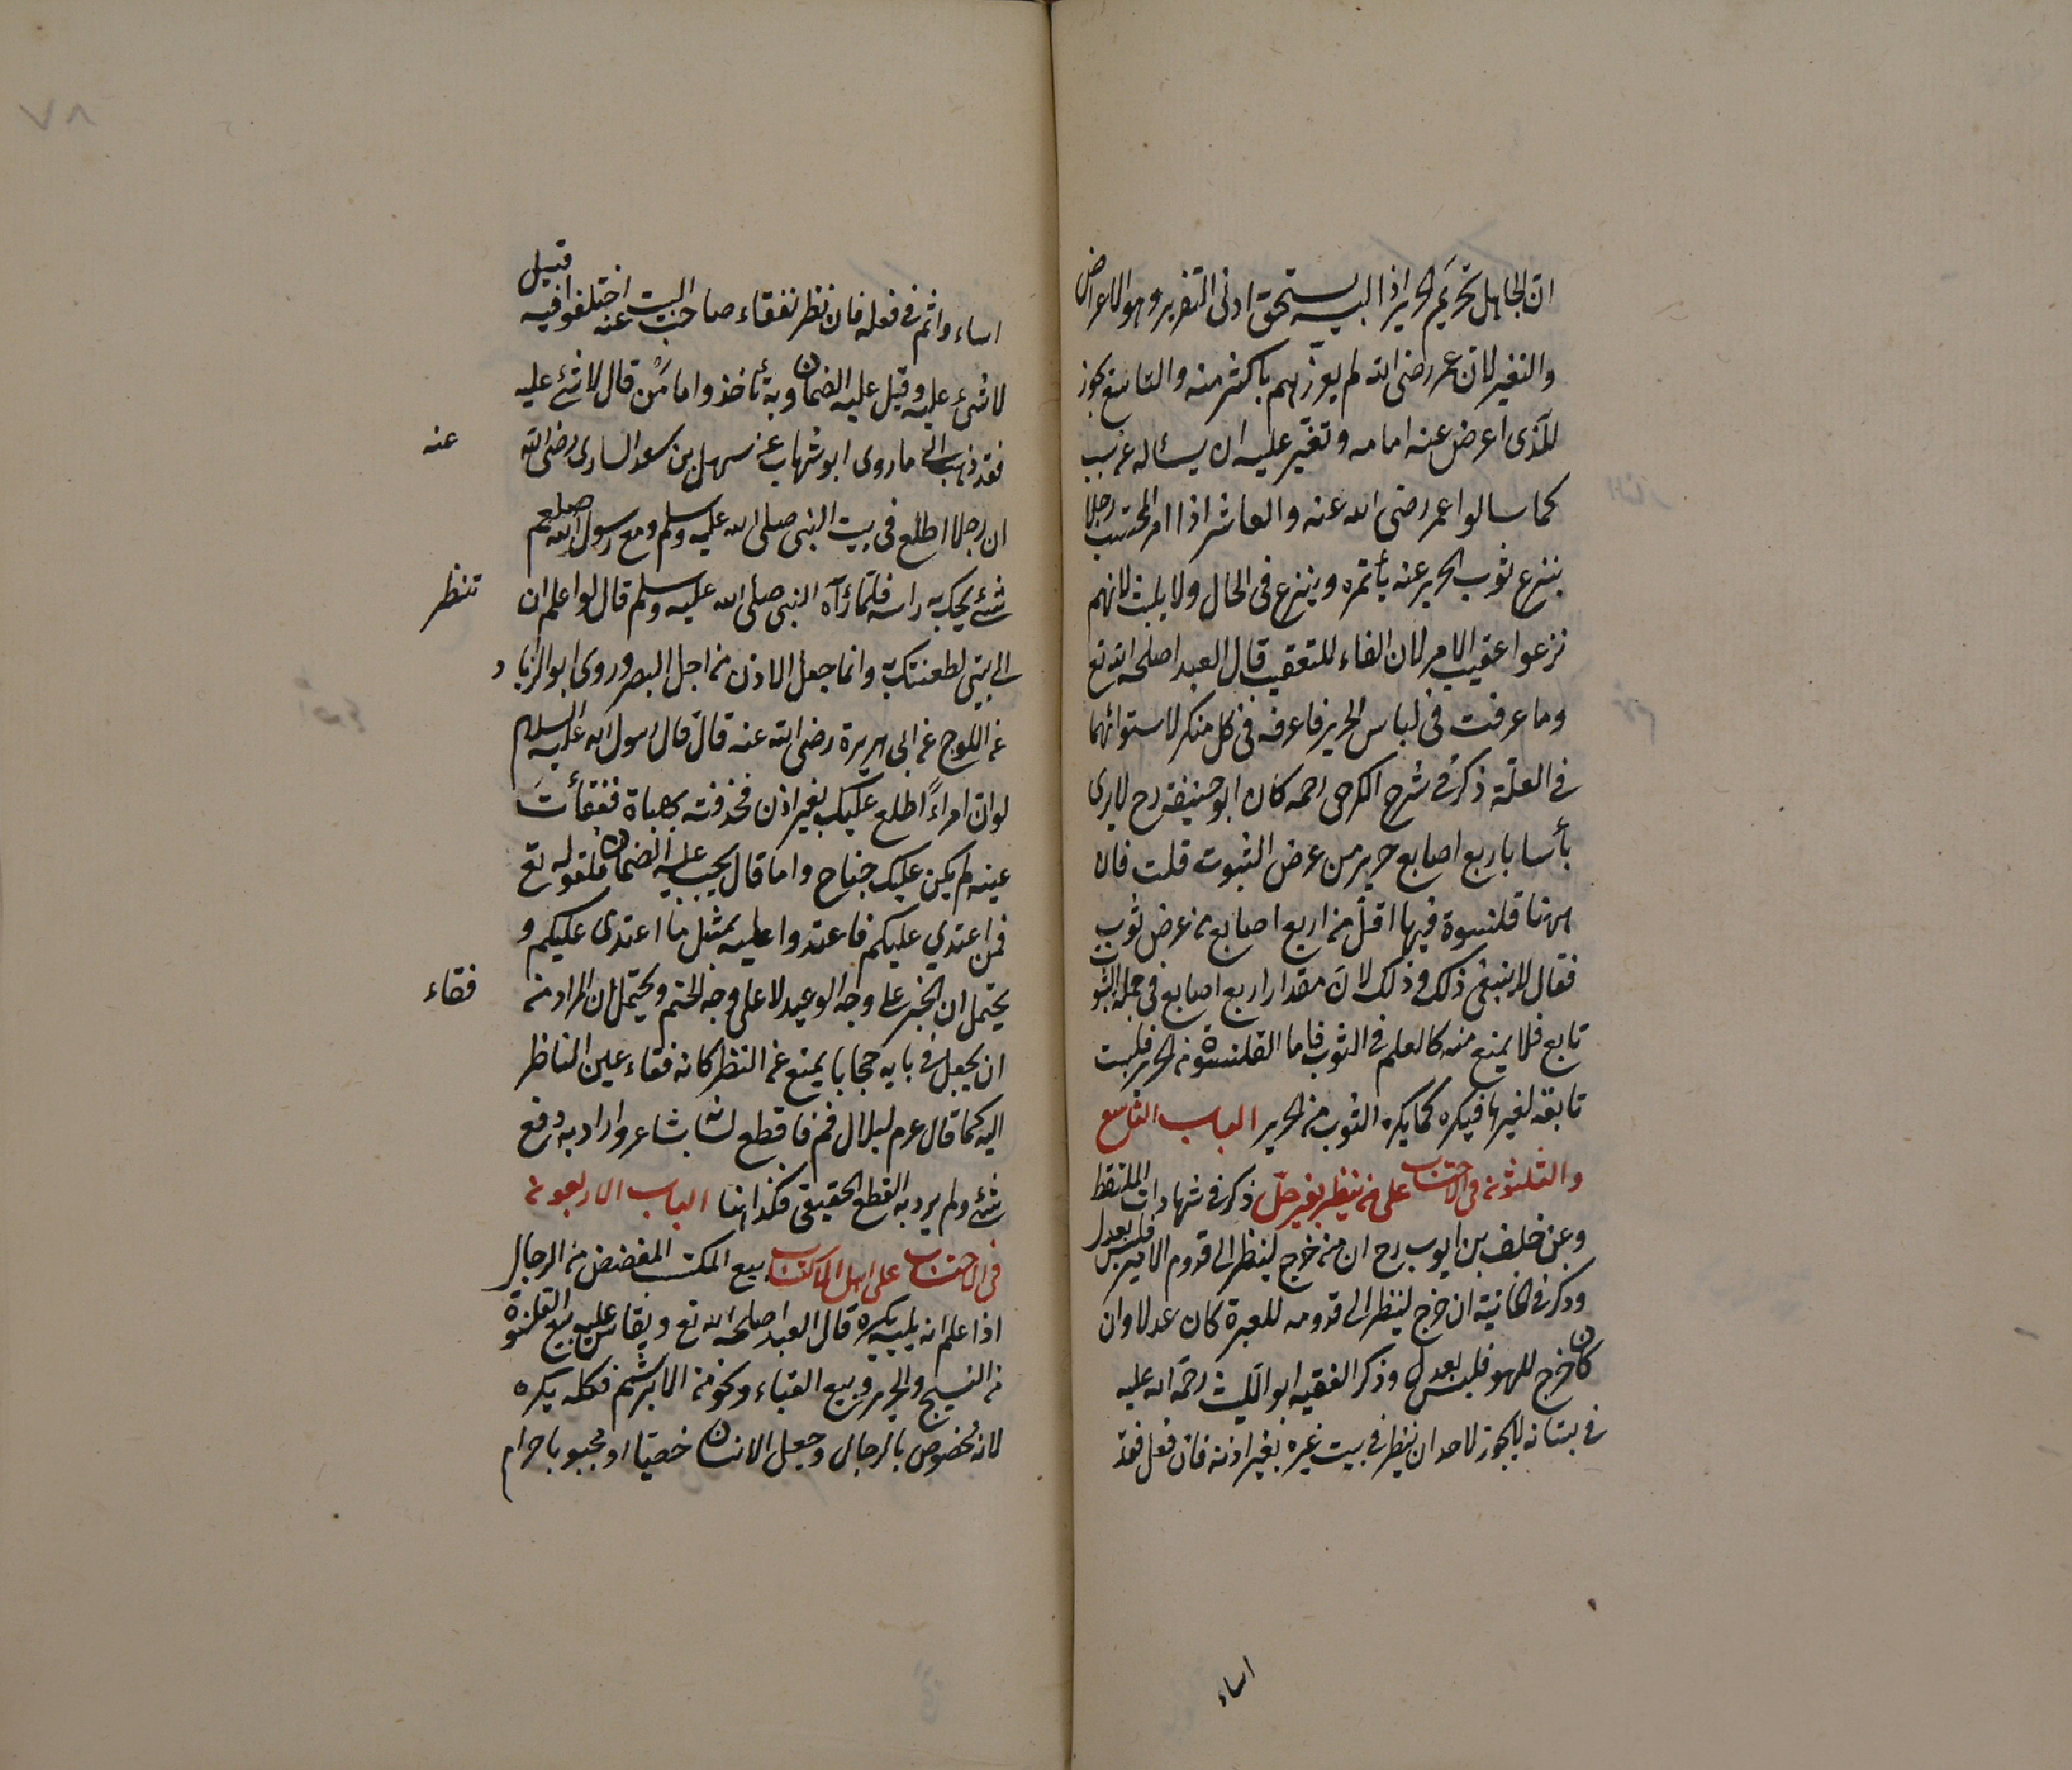 ان الجاهل تحريم الحرير اذا البسه يستحق ادنى التعزير وهو الاعراض
والتغير لان عمر رضى الله لم يعزرهم باكثر منه والتاسع يجوز
للذى اعرض عنه امامه وتغير عليه ان يسئاله عن سبب
كما سالوا عمر رضى الله عنه والعاشر اذا امر المحتسب رجلا
ينزع ثوب الحرير عنه يأتمره وينزع فى الحال ولا يلبث لانهم
نزعوا عقيب الامر لان الفاء للتعقيب قال العبد اصلحه الله تع
وما عرفت فى لباس الحرير فاعرفه فى كل منكر لاستوائهما
فى العلة ذكر فى شرح الكرخى رحمه كان ابو حنيفة رح لا يرى
بأسا باربع اصابع حرير من عرض الثبوت قلت فان
ههنا قلنسوة فيها اقل من اربع اصابع من عرض ثوب
فقال لا ينبغى ذلك وذلك لان مقدار اربع اصابع فى جملة الثوب
تابع فلا يمنع منه كالعلم فى الثوب فاما القلنسوة من الحرير فليست
تابعة لغيرها فيكره كما يكره الثوب من الحرير الباب التاسع
والثلثون فى الاحتساب على من ينظر بغير حل ذكر فى شهادات الملتقط
وعن خلف بن ايوب رح ان من خرج لينظر الى قدوم الامير فليس بعدل
وذكر فى الخانية ان خرج لينظر الى قدومه للعبرة كان عدلا وان
كان خرج للهو فليس بعدل وذكر الفقيه ابو الليث رحمة الله عليه
فى بستانه لا يجوز لاحد ان ينظر فى بيت غيره بغير اذنه فان فعل فقد
اساء
اساء واثم فى فعله فان نظر ففقاء صاحب البيت عنه اختلفوا فيه قيل
لا شىء عليه وقيل عليه الضمان وبه نأخذ واما من قال لا شئ عليه
فقد ذهب الى ما روى ابو شهاب عن سهل بن سعد السادى رضى الله عنه
ان رجلا اطلع فى بيت النبى صلى الله عليه وسلم ومع رسول الله صلعم
شئ يحك به راسه فلما رآه النبى صلى الله عليه وسلم قال لو اعلم ان تنظر
الى بيتى لطعنتك به وانما جعل الاذن من اجل البصر وروى ابو الزناد
عن اللوج عن ابى هريرة رضى الله عنه قال قال رسول الله عليه السلام
لو ان امراءً اطلع عليك بغير اذن فخذفته بحصاة ففقأتَ
عينه لم يكن عليك جناح واما قال يجب عليه الضمان فلقوله تع
فمن اعتدي عليكم فاعتدوا عليه بمثل ما اعتدى عليكم و
يحتمل ان الخبر على وجه الوعيد لا على وجه الحتم ويحتمل ان المراد من فقاء
ان يجعل فى بابه حجابا يمنع عن النظر كانه فقاء عين الناظر
اليه كما قال عرم لبلال قم فاقطع لسان شاعر واراد به دفع
شئ ولم يرد به القطع الحقيقى فكذا هنا الباب الاربعون
فى الاحتساب على اهل الاكتساب بيع المكتب المفضض من الرجال
اذا علم انه يلبسه يكره قال العبد اصلحه الله تع ويقاس عليه بيع القلنسوة
من النسيج والحرير وبيع القباء ونحو من الابريشم فكله يكره
لانه مخصوص بالرجال وجعل الانسان خصيا او مجبوبا حرام
٨٧